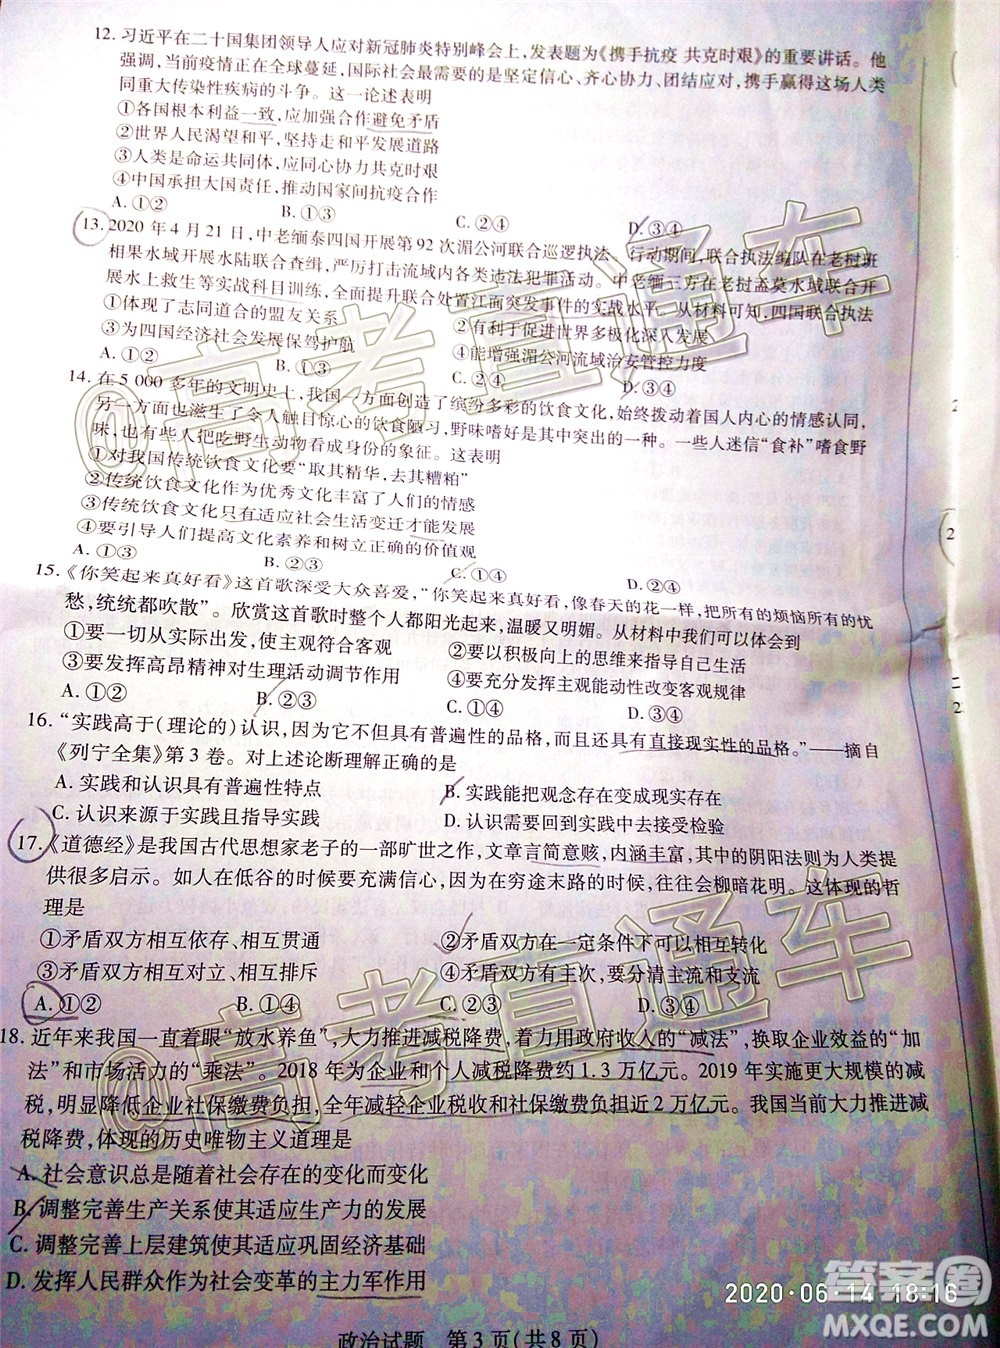 12. 习近平在二十国集团领导人应对新冠肺炎特别峰会上，发表题为《携手抗疫 共克时艰》的重要讲话。他
强调，当前疫情正在全球蔓延，国际社会最需要的是坚定信心、齐心协力、团结应对，携手赢得这场人类
同重大传染性疾病的斗争。这一论述表明
①各国根本利益一致，应加强合作避免矛盾
②世界人民渴望和平，坚持走和平发展道路
③人类是命运共同体，应同心协力共克时艰
④中国承担大国责任，推动国家间抗疫合作
A. ①② B. ①③ C. ②④ D. ③④
13. 2020 年 4 月 21 日，中老缅泰四国开展第 92 次湄公河联合巡逻执法、行动期间，联合执法编队在老挝班
相果水域开展水陆联合查缉，严厉打击流域内各类违法犯罪活动。中老缅三方在老挝孟莫水域联合开
展水上救生等实战科目训练，全面提升联合处置江面突发事件的实战水平。从材料可知，四国联合执法
①体现了志同道合的盟友关系 ②有利于促进世界多极化深入发展
③为四国经济社会发展保驾护航 ④能增强湄公河流域治安管控力度
A. ①② B. ①③ C. ②④ D. ③④
14. 在 5 000 多年的文明史上，我国一方面创造了缤纷多彩的饮食文化，始终拨动着国人内心的情感认同，
另一方面也滋生了令人触目惊心的饮食陋习，野味嗜好是其中突出的一种。一些人迷信“食补”嗜食野
味，也有些人把吃野生动物看成身份的象征。这表明
①对我国传统饮食文化要“取其精华，去其糟粕”
②传统饮食文化作为优秀文化丰富了人们的情感
③传统饮食文化只有适应社会生活变迁才能发展
④要引导人们提高文化素养，树立正确的价值观
A. ①③ B. ②③ C. ①④ D. ②④
15. 《你笑起来真好看》这首歌深受大众喜爱，“你笑起来真好看，像春天的花一样，把所有的烦恼所有的忧
愁，统统都吹散”。欣赏这首歌时整个人都阳光起来，温暖又明媚。从材料中我们可以体会到
①要一切从实际出发，使主观符合客观 ②要以积极向上的思维来指导自己生活
③要发挥高昂精神对生理活动调节作用 ④要充分发挥主观能动性改变客观规律
A. ①② B. ②③ C. ①④ D. ③④
16. “实践高于（理论的）认识，因为它不但具有普遍性的品格，而且还具有直接现实性的品格。”——摘自
《列宁全集》第 3 卷。对上述论断理解正确的是
A. 实践和认识具有普遍性特点 B. 实践能把观念存在变成现实存在
C. 认识来源于实践且指导实践 D. 认识需要回到实践中去接受检验
17. 《道德经》是我国古代思想家老子的一部旷世之作，文章言简意赅，内涵丰富，其中的阴阳法则为人类提
供很多启示。如人在低谷的时候要充满信心，因为在穷途末路的时候，往往会柳暗花明。这体现的哲
理是
①矛盾双方相互依存、相互贯通 ②矛盾双方在一定条件下可以相互转化
③矛盾双方相互对立、相互排斥 ④矛盾双方有主次，要分清主流和支流
A. ①② B. ①④ C. ②③ D. ③④
18. 近年来我国一直着眼“放水养鱼”，大力推进减税降费，着力用政府收入的“减法”，换取企业效益的“加
法”和市场活力的“乘法”。2018 年为企业和个人减税降费约 1.3 万亿元。2019 年实施更大规模的减
税，明显降低企业社保缴费负担，全年减轻企业税收和社保缴费负担近 2 万亿元。我国当前大力推进减
税降费，体现的历史唯物主义道理是
A. 社会意识总是随着社会存在的变化而变化
B. 调整完善生产关系使其适应生产力的发展
C. 调整完善上层建筑使其适应巩固经济基础
D. 发挥人民群众作为社会变革的主力军作用
政治试题 第 3 页（共 8 页）
2020·06·14 18:16
答案圈
MXQE.COM
@高考直通车
@高考直通车